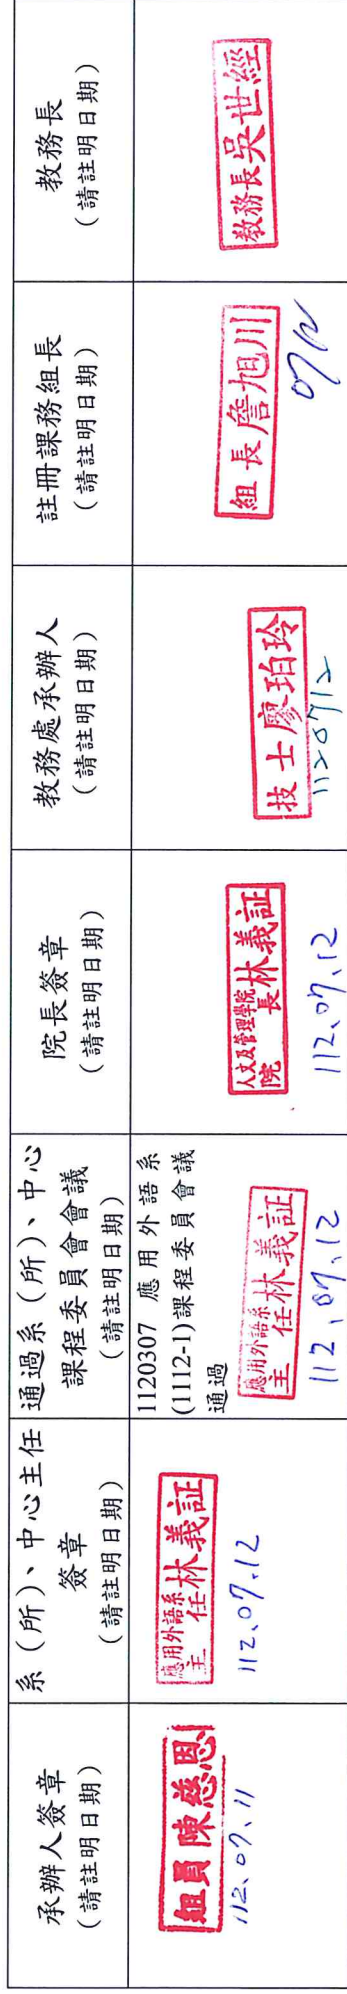 承辦人簽章
(請註明日期)
系(所)、中心主任
簽章
(請註明日期)
通過系(所)、中心
課程委員會會議
(請註明日期)
院長簽章
(請註明日期)
教務處承辦人
(請註明日期)
註冊課務組長
(請註明日期)
教務長
(請註明日期)
組員陳慈恩
112.07.11
應用外語系
主任林義証
112.07.12
1120307 應用外語系
(1112-1)課程委員會議
通過
應用外語系
主任林義証
112.07.12
人文及管理學院
院長林義証
112.07.12
技士廖珀玲
1120712
組長詹旭川
07/12
教務長吳世經